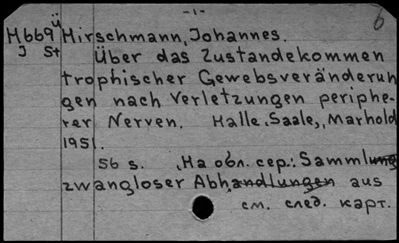 -1-
б
М669 Hirschmann, Johannes.
J St Über das Zustandekommen
trophischer Gewebsveränderun
gen nach Verletzungen periphe-
rer Nerven. Halle, Saale, Marhold
1951.
56 s. "На обл. сер.: Sammlung
zwangloser Abhandlungen aus
см. след. карт.